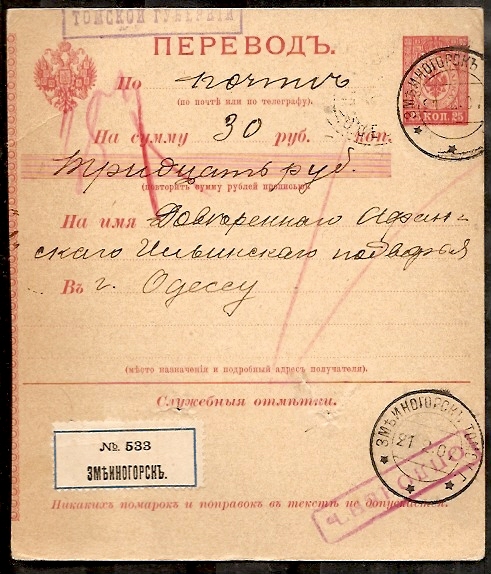 ТОМСКОЙ ГУБЕРНІИ
ПЕРЕВОДЪ.
По почтѣ
(по почтѣ или по телеграфу).
На сумму 30 руб. коп.
Тридцать руб.
(повторить сумму рублей прописью)
На имя Довѣреннаго Афон-
скаго Ильинскаго подворья
Въ г. Одессу
(мѣсто назначенія и подробный адресъ получателя).
Служебныя отмѣтки.
№. 533
ЗМѢИНОГОРСКЪ.
Никакихъ помарокъ и поправокъ въ текстѣ не допускается.
25 КОП. 25
ЗМѢИНОГОРСКЪ
ЗМѢИНОГОРСКЪ ТОМ. Г.
21